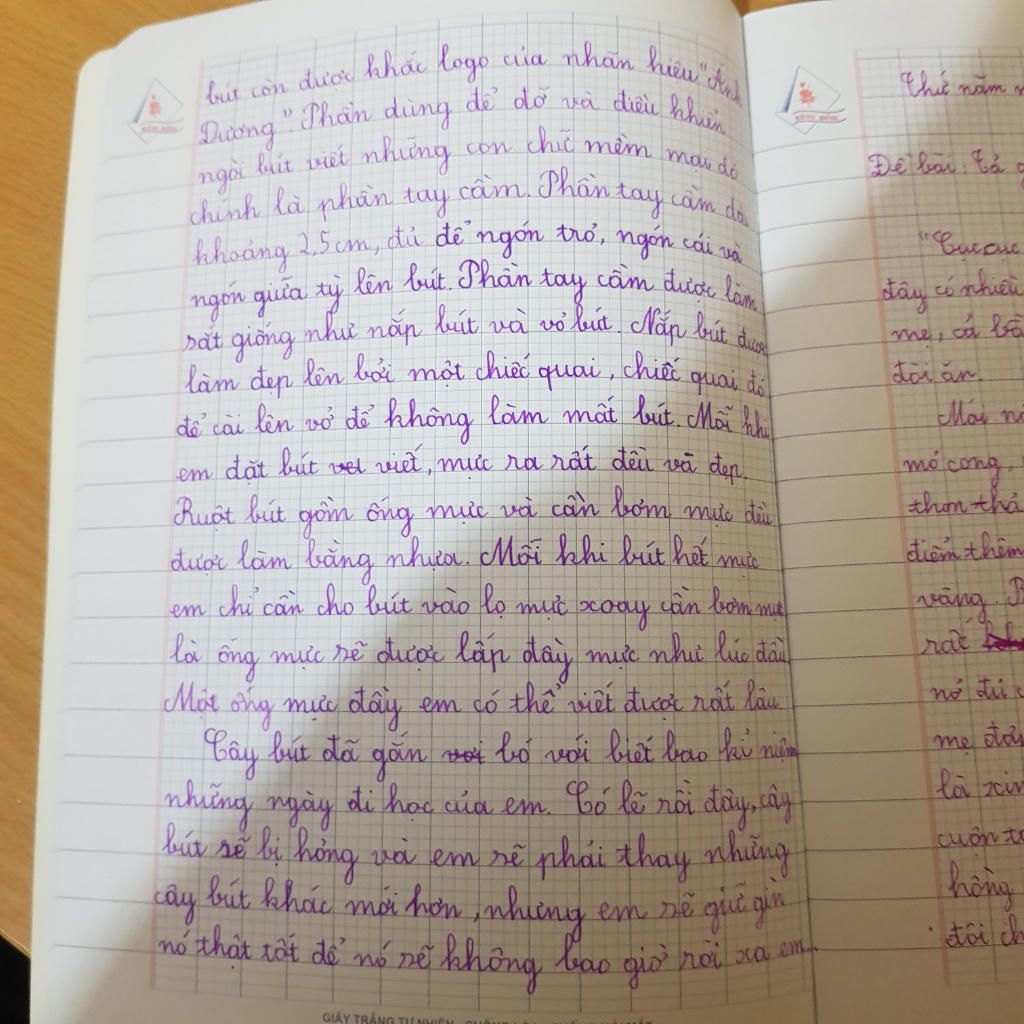 bút còn được khắc logo của nhãn hiệu "Ánh
Dương". Phần dùng để đỡ và điều khiển
ngòi bút viết những con chữ mềm mại đó
chính là phần tay cầm. Phần tay cầm dài
khoảng 2,5 cm, đủ để ngón trỏ, ngón cái và
ngón giữa tỳ lên bút. Phần tay cầm được làm
rất giống như nắp bút và vỏ bút. Nắp bút được
làm đẹp lên bởi một chiếc quai, chiếc quai đó
để cài lên vở để không làm mất bút. Mỗi khi
em đặt bút viết, mực ra rất đều và đẹp.
Ruột bút gồm ống mực và cần bơm mực đều
được làm bằng nhựa. Mỗi khi bút hết mực
em chỉ cần cho bút vào lọ mực xoay cần bơm mực
là ống mực sẽ được lấp đầy mực như lúc đầu.
Một ống mực đầy em có thể viết được rất lâu.
Cây bút đã gắn bó với biết bao kỉ niệm
những ngày đi học của em. Có lẽ rồi đây, cây
bút sẽ bị hỏng và em sẽ phải thay những
cây bút khác mới hơn, nhưng em sẽ giữ gìn
nó thật tốt để nó sẽ không bao giờ rời xa em.
GIẤY TRẮNG TỰ NHIÊN
Thứ năm
Đề bài: Tả
"Cục cục
đây có nhiều
mẹ, cả
đòi ăn.
Mái
mỏ cong,
thon thả
điểm thêm
vàng.
rất
nó đủ
mẹ
là
cuộn
hồng
đôi